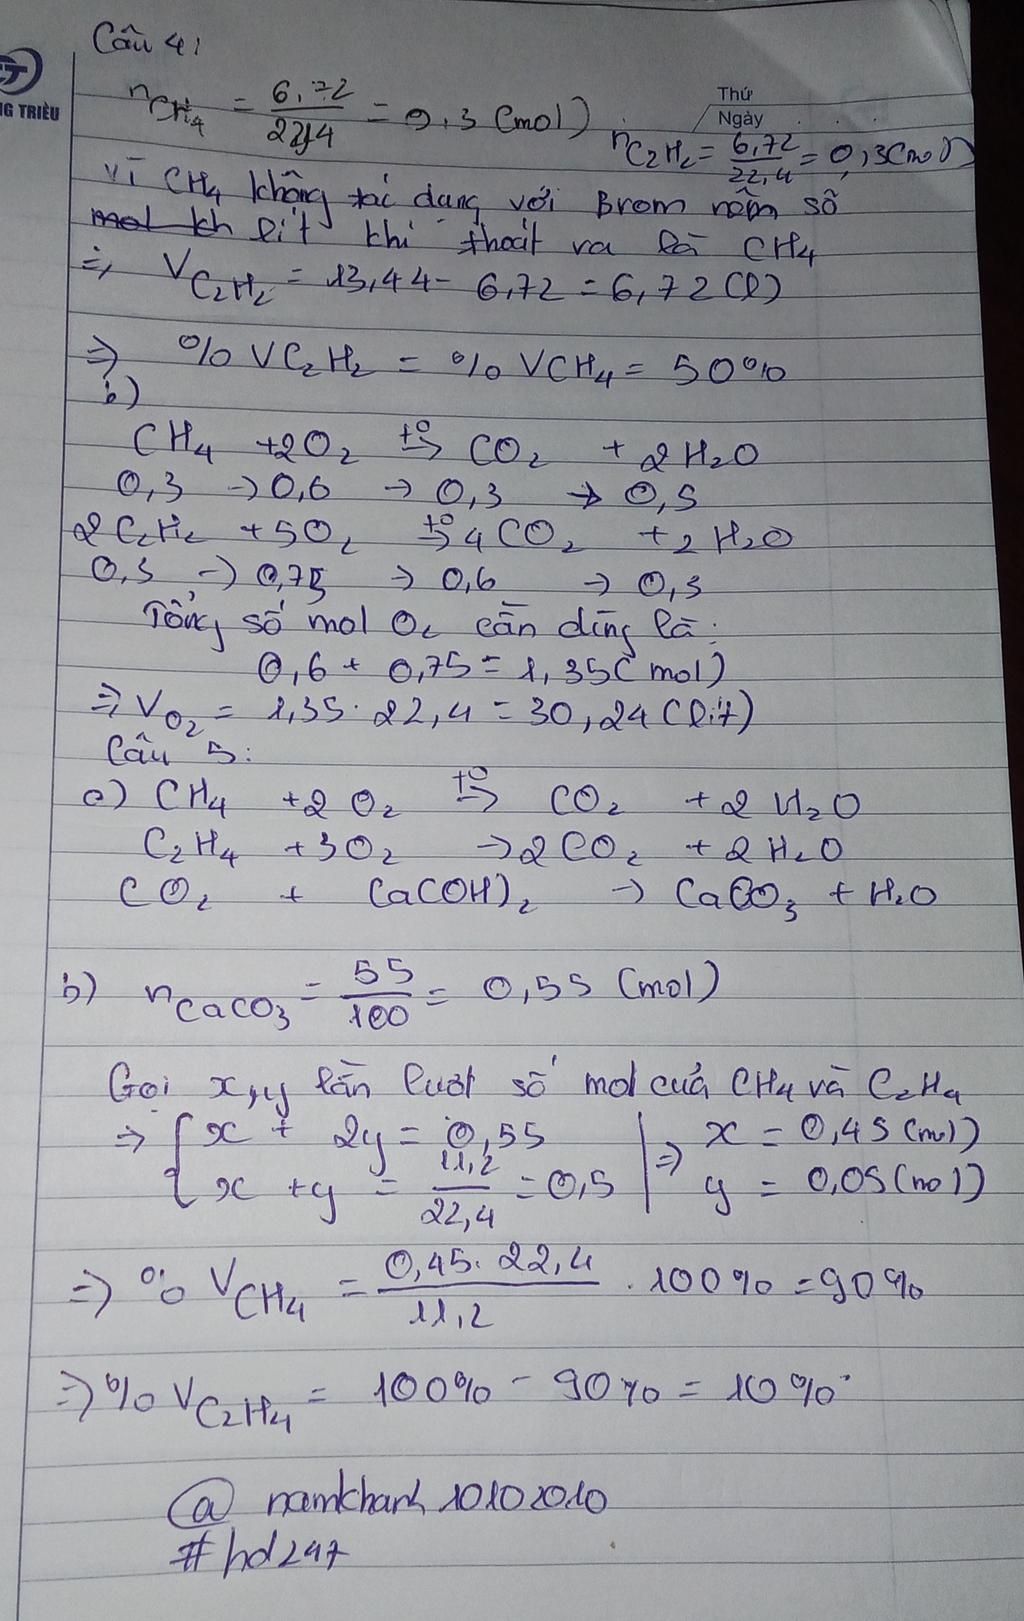 Câu 4:
NG TRIỀU
Thứ
Ngày
nCH₄ = 6,72/22,4 = 0,3 (mol)
nC₂H₂ = 6,72/22,4 = 0,3(mol)
Vì CH₄ không tác dụng với Brom nên số
mol kh lít khí thoát ra là CH₄
=> VC₂H₂ = 13,44 - 6,72 = 6,72 (l)
=> %VC₂H₂ = %VCH₄ = 50%
b)
CH₄ + 2O₂ t° → CO₂ + 2H₂O
0,3 → 0,6 → 0,3 → 0,5
2C₂H₂ + 5O₂ t° → 4CO₂ + 2H₂O
0,3 → 0,75 → 0,6 → 0,3
Tổng số mol O₂ cần dùng là:
0,6 + 0,75 = 1,35( mol)
=> VO₂ = 1,35 . 22,4 = 30,24 (lít)
Câu 5:
a) CH₄ + 2O₂ t° → CO₂ + 2H₂O
C₂H₄ + 3O₂ → 2CO₂ + 2H₂O
CO₂ + Ca(OH)₂ → CaCO₃ + H₂O
b) nCaCO₃ = 55/100 = 0,55 (mol)
Gọi x,y lần lượt số mol của CH₄ và C₂H₄
=> { x + 2y = 0,55 | => x = 0,45 (mol)
x + y = 11,2/22,4 = 0,5 | y = 0,05 (mol)
=> % VCH₄ = 0,45. 22,4/11,2 . 100% = 90%
=> % VC₂H₄ = 100% - 90% = 10%
@ namkhanh10102010
#hd247